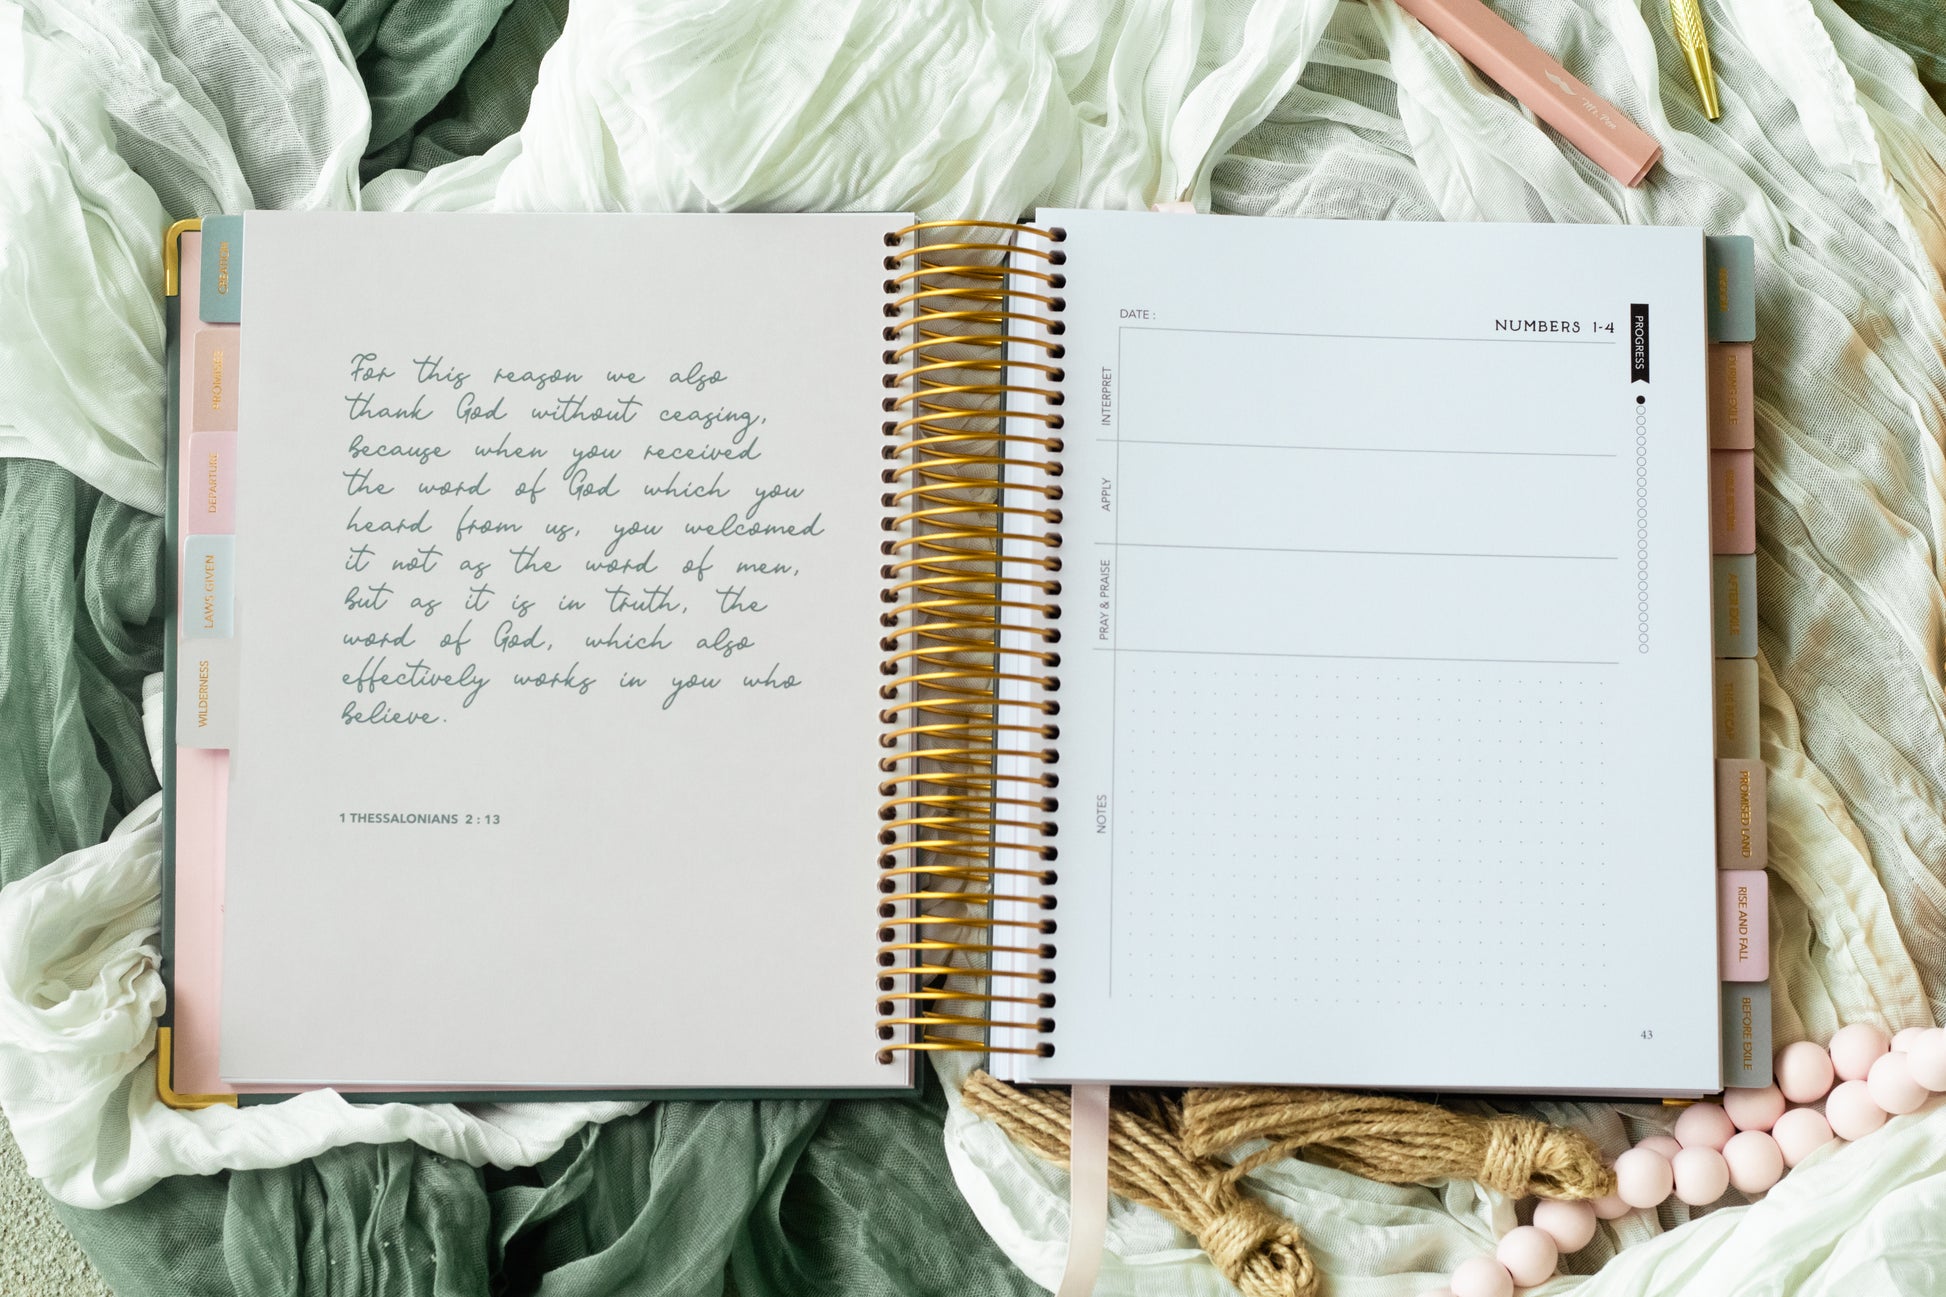 Mr. Pen
CREATION
PROMISES
DEPARTURE
LAWS GIVEN
WILDERNESS
For this reason we also
thank God without ceasing,
because when you received
the word of God which you
heard from us, you welcomed
it not as the word of men,
but as it is in truth, the
word of God, which also
effectively works in you who
believe.
1 THESSALONIANS 2:13
DATE :
NUMBERS 1-4
PROGRESS
INTERPRET
APPLY
PRAY & PRAISE
NOTES
43
AFTER EXILE
PROMISED LAND
RISE AND FALL
BEFORE EXILE